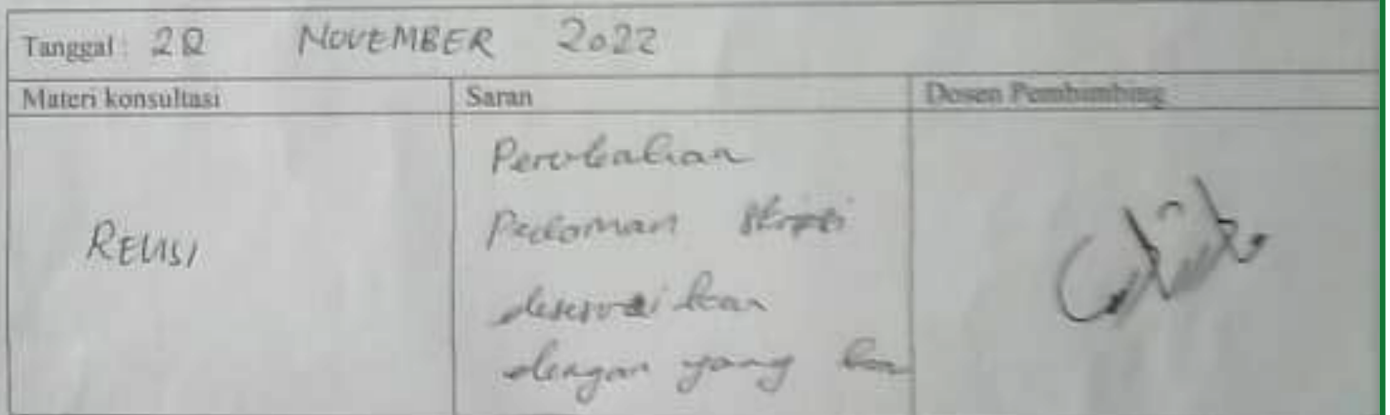 Tanggal : 28 NOVEMBER 2022
Materi konsultasi Saran Dosen Pembimbing
Perubahan
Pedoman skripsi
REVISI
disesuaikan
dengan yang